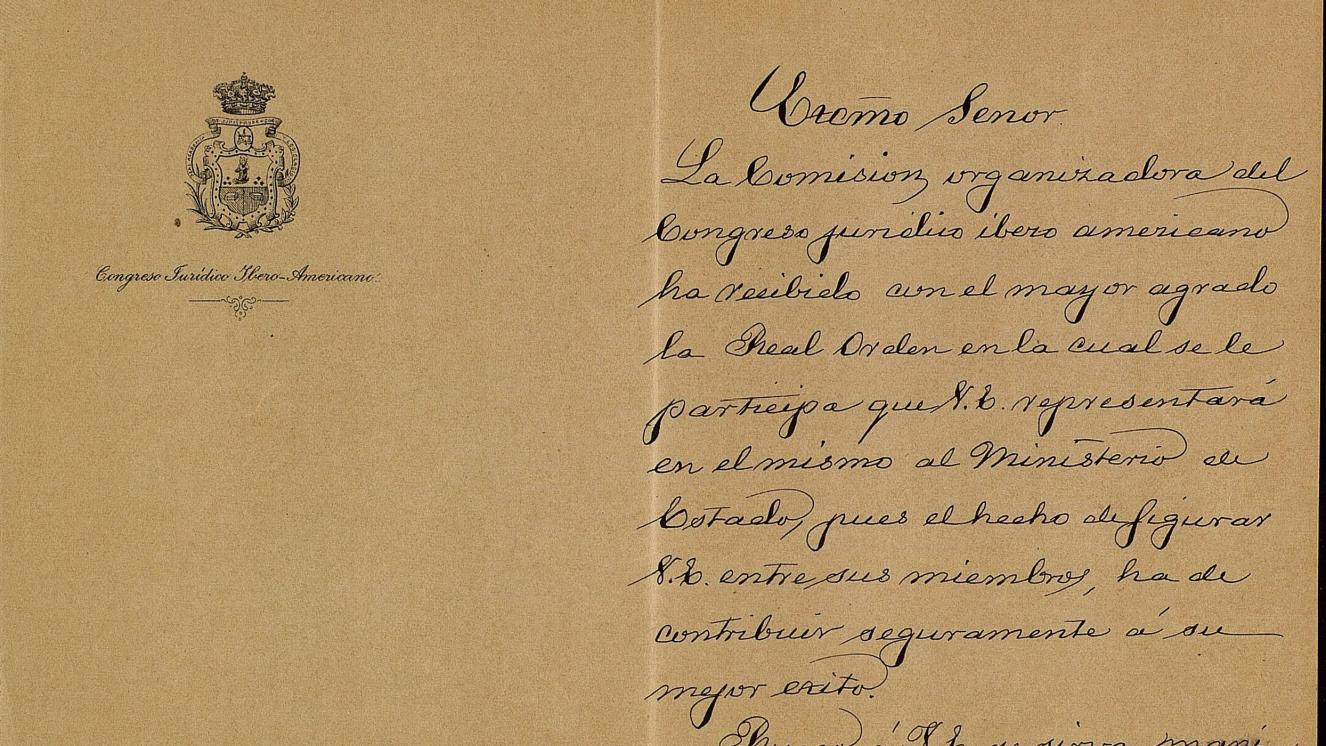 Congreso Jurídico Ibero-Americano.
Excmo Senor
La Comision organizadora del
Congreso juridico ibero americano
ha recibido con el mayor agrado
la Real Orden en la cual se le
participa que V.E. representará
en el mismo al Ministerio de
Estado, pues el hecho de figurar
V.E. entre sus miembros, ha de
contribuir seguramente á su
mejor exito.
Ruego á V.E. se sirva mani